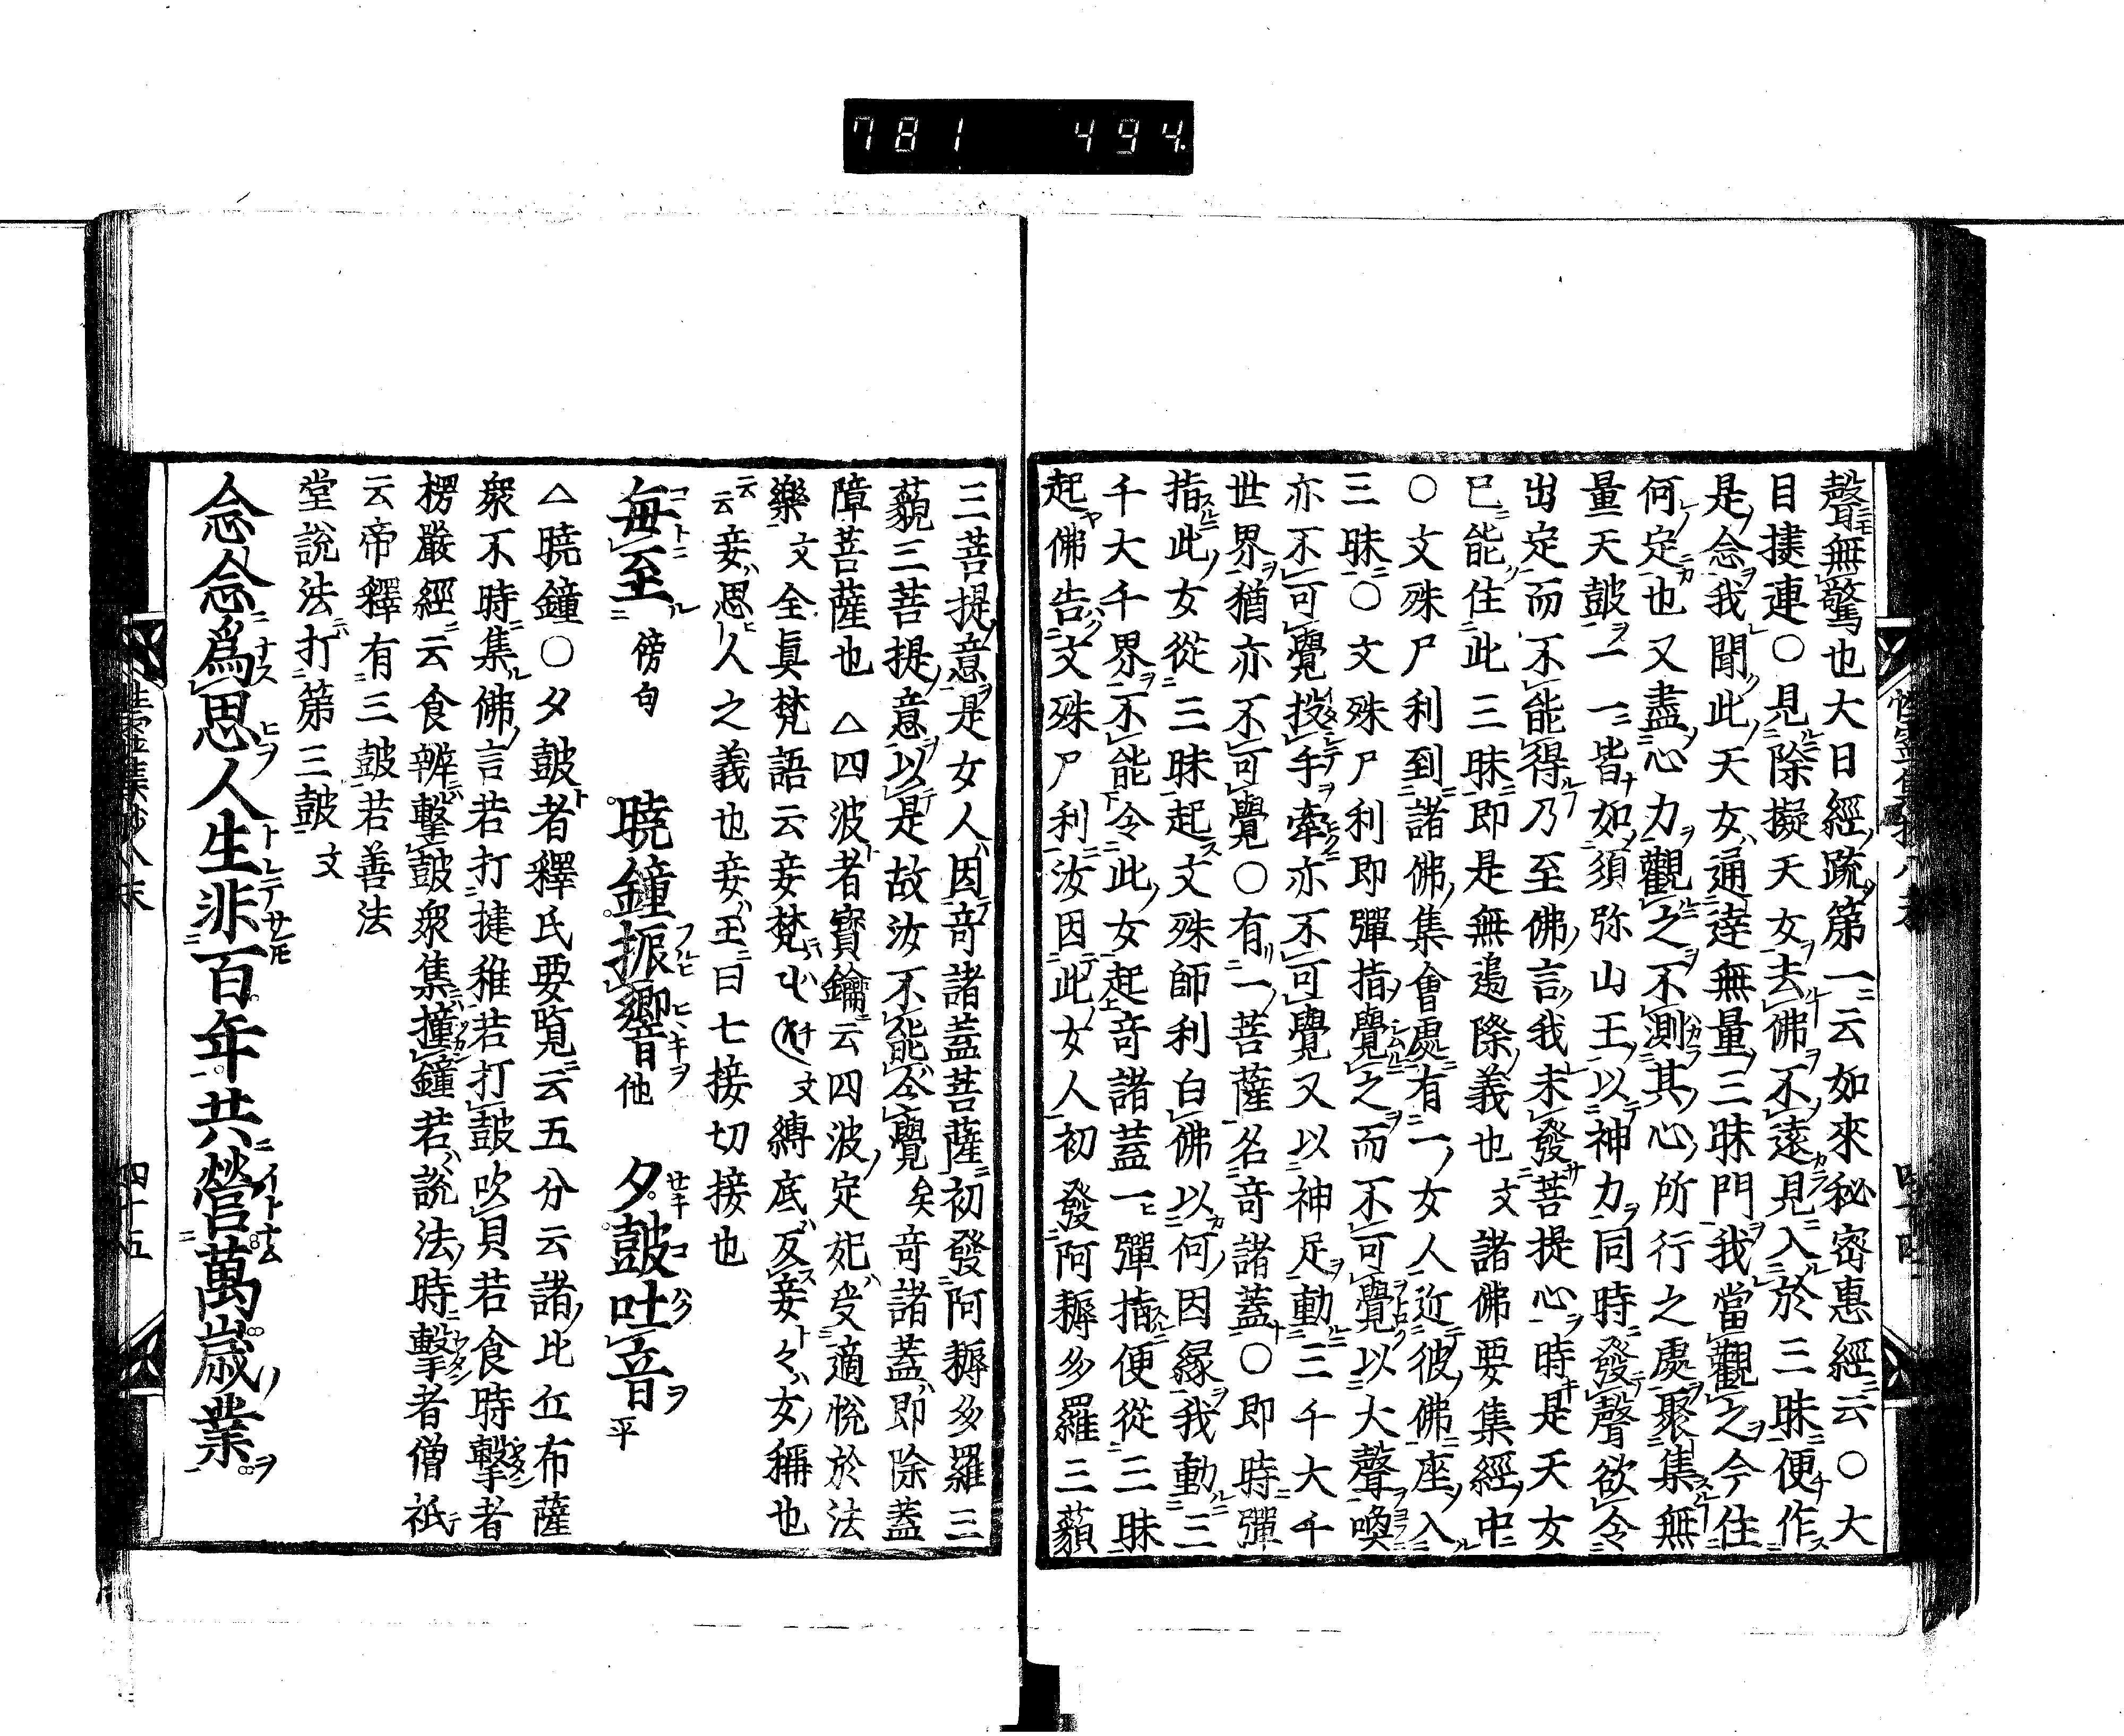 781 494
聲無驚也大日經疏第一云如來秘密惠經云○大
目揵連○見除擬天女去佛不遠見入於三昧便作
是念我聞此天女通達無量三昧門我當觀之今住
何定也又盡心力觀之不測其心所行之處聚集無
量天皷一一皆如須弥山王以神力同時發聲欲令
出定而不能得乃至佛言我未發菩提心時是天女
已能住此三昧即是無邊際義也文諸佛要集經中
○文殊尸利到諸佛集會處有一女人近彼佛座入
三昧○文殊尸利即彈指覺之而不可覺以大聲喚
亦不可覺投手牽亦不可覺又以神足動三千大千
世界猶亦不可覺○有一菩薩名竒諸蓋○即時彈
指此女從三昧起文殊師利白佛以何因縁我動三
千大千界不能令此女起竒諸蓋一彈指便從三昧
起佛告文殊尸利汝因此女人初發阿耨多羅三藐
三菩提意是女人因竒諸蓋菩薩初發阿耨多羅三
藐三菩提意以是故汝不能令覺矣竒諸蓋即除蓋
障菩薩也△四波者寳鑰云四波定妃受適悅於法
樂文全眞梵語云妾梵文縛底反妾々女稱也
云云妾思人之義也妾玉曰七接切接也
每至傍句曉鐘振響他夕皷吐音平
△曉鐘○夕皷者釋氏要覧云五分云諸比丘布薩
衆不時集佛言若打揵稚若打皷吹貝若食時擊者
楞嚴經云食辦擊皷衆集撞鐘若說法時擊者僧祇
云帝釋有三皷若善法
堂說法打第三皷文
念念爲思人生非百年共營萬歲業
四十五